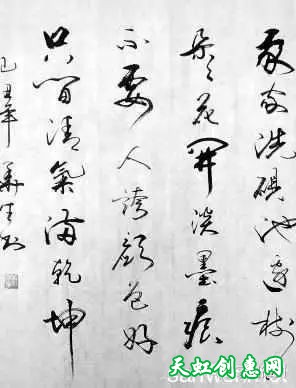 我家洗硯池邊樹
朵々花開淡墨痕
不要人誇顏色好
只留清氣滿乾坤
己丑年
天虹创意网